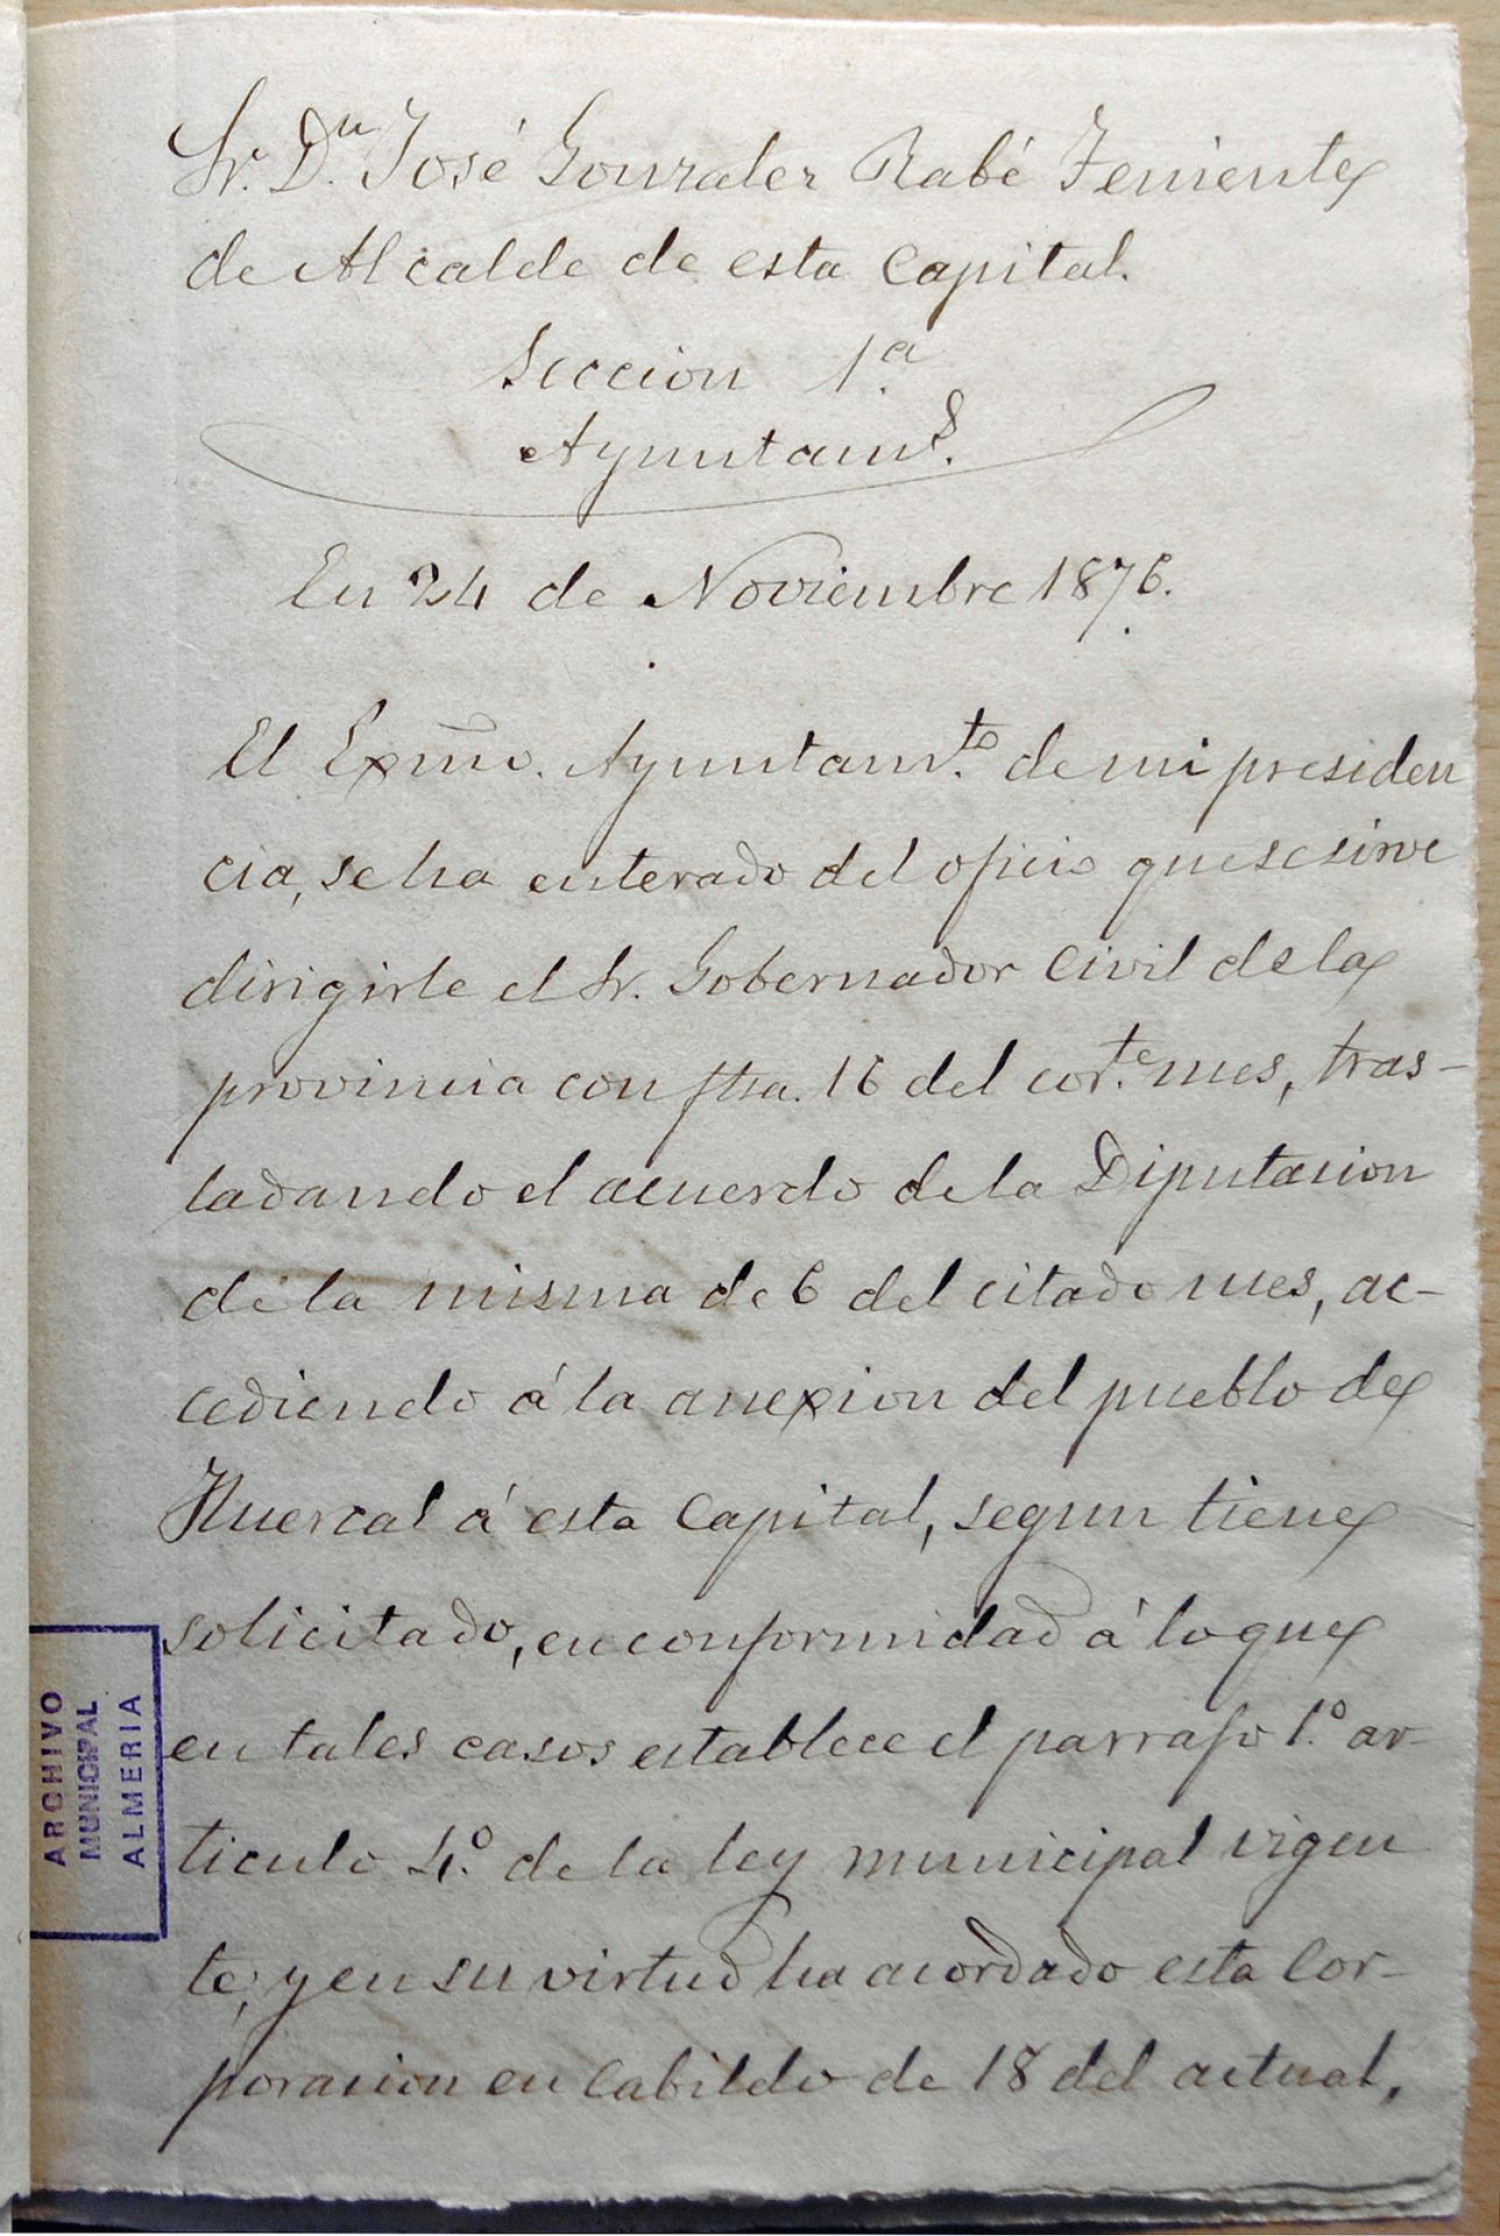 Sr. Dn. José Gonzalez Rabé Teniente
de Alcalde de esta Capital.
Seccion 1.a
Ayuntams.
En 24 de Noviembre 1876.
El Exmo. Ayuntam.to de mi presiden
cia, se ha enterado del oficio que se sirve
dirigirle el Sr. Gobernador Civil de la
provincia con fha. 16 del cor.te mes, tras-
ladando el acuerdo de la Diputacion
de la misma de 6 del citado mes, ac-
cediendo á la anexion del pueblo de
Huercal á esta Capital, segun tiene
solicitado, en conformidad á lo que
en tales casos establece el parrafo 1.º ar-
ticulo 4.º de la ley municipal vigen
te, y en su virtud ha acordado esta Cor-
poracion en Cabildo de 18 del actual,
ARCHIVO
MUNICIPAL
ALMERIA